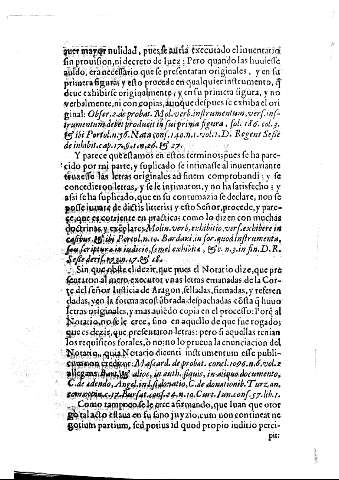 quer mayor nulidad, pues se auria executado el inuentario
sin prouision, ni decreto de Iuez: Pero quando las huuiesse
auido, era necessario que se presentaran originales, y en su
primera figura; y esto procede en qualquier instrumento, q̃
deue exhibirse originalmente, y en su primera figura, y no
verbalmente, ni con copias, aunque despues se exhiba el ori
ginal: Obser. 2. de probat. Mol. verb. instrumentum, vers. ins-
trumentum debet produci in sui prima figura, fol. 186. col. 3.
& ibi Portol. n. 36. Nata conf. 140. n. 1. vol. 1. D. Regent Sesse
de inhibit. cap. 17. §. 1. n. 26. & 27.
Y parece que estamos en estos terminos pues se ha pare-
cido por mi parte, y suplicado se intimasse al inuentariante
truxesse las letras originales ad finem comprobandi; y se
concedieron letras, y se le intimaron, y no ha satisfecho; y
assi se ha suplicado, que en su contumazia se declare, non so
posse iuuare de dictis litteris; y esto Señor, procede, y pare-
ce, que es corriente en practica: como lo dizen con muchas
doctrinas, y exẽplares Molin. verb. exhibitio, vers. exhibere in
casibus, & ibi Portol. n. 10. Bardaxi, in for. quod instrumenta,
seu scriptura in iudicio semel exhibita, & v. n. 3. in fin. D. R.
Sesse decis. 17. in 17. & 18.
Sin que obste el dezir, que pues el Notario dize, que pre
sentaron al mero executor vnas letras emanadas de la Cor-
te del señor Iusticia de Aragon, selladas, firmadas, y referen
dadas, y en la forma acostũbrada despachadas cõsta q̃ huuo
Letras originales, y mas auiẽdo copia en el processo: Porq̃ al
Notario, no se le cree, sino en aquello de que fue rogado
que es dezir, que presentaron letras: pero si aquellas tenian
los requisitos forales, ò no, no lo prueua la enunciacion del
Notario, quia Notario dicenti instrumentum esse publi-
cum non creditur. Mascard. de probat. concl. 1096. n. 6. vol. 2
allegans Bart. & alios, in auth. si quis, in aliquo documento,
C. de edendo, Angel. in l. si donatio, C. de donationib. Turz. am
commun. c. 17. Bursat. conf. 24. n. 10. Curt. Iun. conf. 57. lib. 1.
Como tampoco se le cree afirmando, que Iuan que otor
gò tal acto estaua en su sano juyzio, cum non contineat ne
gotium partium, sed potius id quod proprio iuditio perci-
pit: